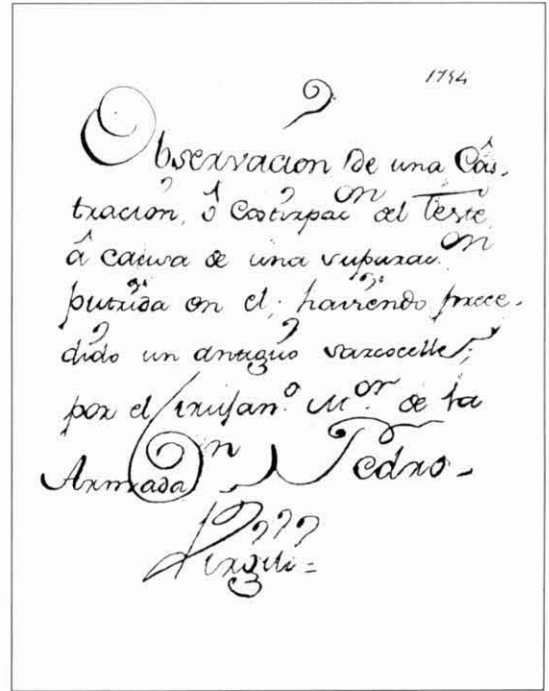 1754
Observacion de una Cas-
tracion, ô Extirpac.on del Teste
â causa de una supurac.on
putrida en el; haviendo prece-
dido un antiguo varcocelle;
por el Cirujan.o M.or de la
Armada Dn Pedro
Virgili=